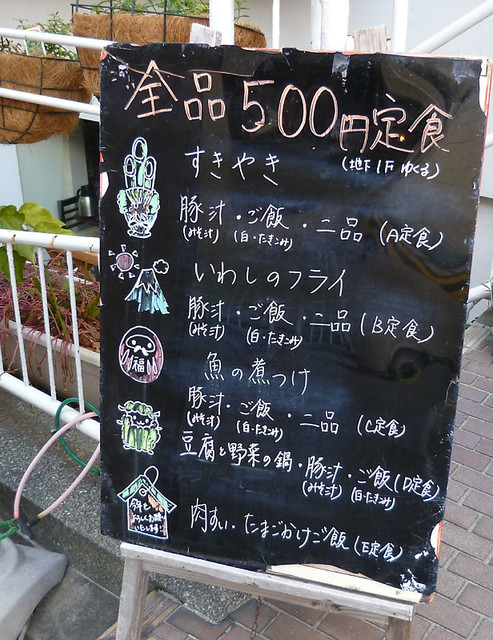 全品500円定食
(地下1F ゆくる)
すきやき
豚汁・ご飯・二品 (A定食)
(みそ汁) (白・たきこみ)
いわしのフライ
豚汁・ご飯・二品 (B定食)
(みそ汁) (白・たきこみ)
魚の煮つけ
福
豚汁・ご飯・二品 (C定食)
(みそ汁) (白・たきこみ)
豆腐と野菜の鍋・豚汁・ご飯(D定食)
(みそ汁) (白・たきこみ)
今年も
よろしくお願い
いたします!
肉すい・たまごかけご飯(E定食)